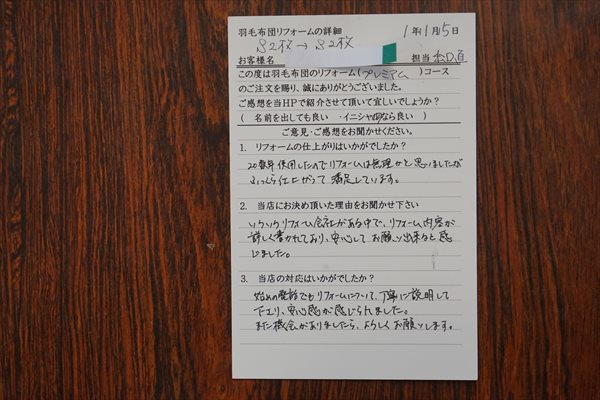 羽毛布団リフォームの詳細 1年1月5日
S2枚→S2枚
お客様名 担当
この度は羽毛布団のリフォーム(プレミアム)コース
のご注文を賜り、誠にありがとうございました。
ご感想を当HPで紹介させて頂いて宜しいでしょうか?
( 名前を出しても良い ・イニシャルなら良い )
ご意見・ご感想をお聞かせください。
1. リフォームの仕上がりはいかがでしたか?
20数年使用したのでリフォームは無理かと思いましたが
ふっくら仕上がって満足しています。
2. 当店にお決め頂いた理由をお聞かせ下さい
いろいろリフォーム会社がある中で、リフォーム内容が
詳しく書かれており、安心してお願い出来ると感
じました。
3. 当店の対応はいかがでしたか?
始めの電話でもリフォームについて、丁寧に説明して
下さり、安心感が感じられました。
また機会がありましたら、よろしくお願いします。